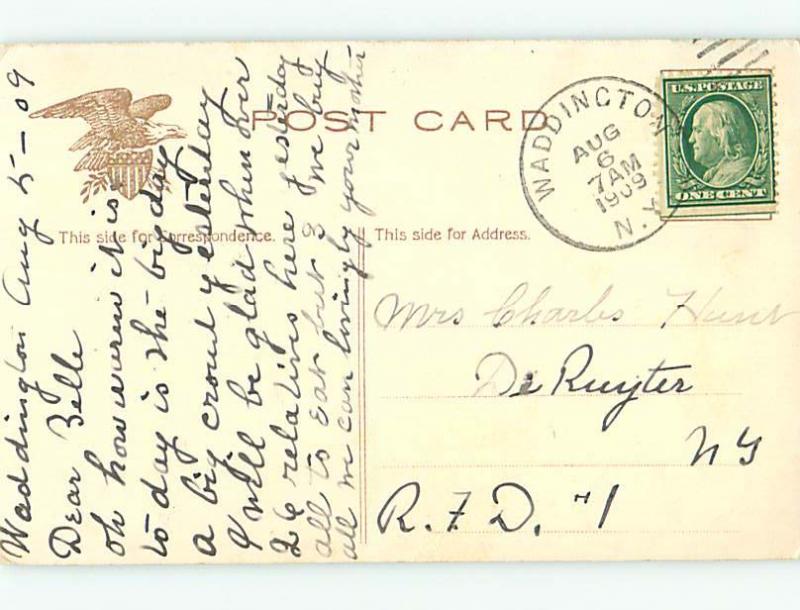 POST CARD
This side for Correspondence.
This side for Address.
WADDINGTON
AUG
6
7AM
1909
N.Y.
U.S. POSTAGE
ONE CENT
Waddington Aug 5-09
Dear Belle
oh how warm it is
to day is the big day
a big crowd yesterday
I will be glad when over
26 relatives here yesterday
all to eat but 3 we buy
all we can lovingly your mother
Mrs Charles Hunt
De Ruyter
NY
R.F.D. #1